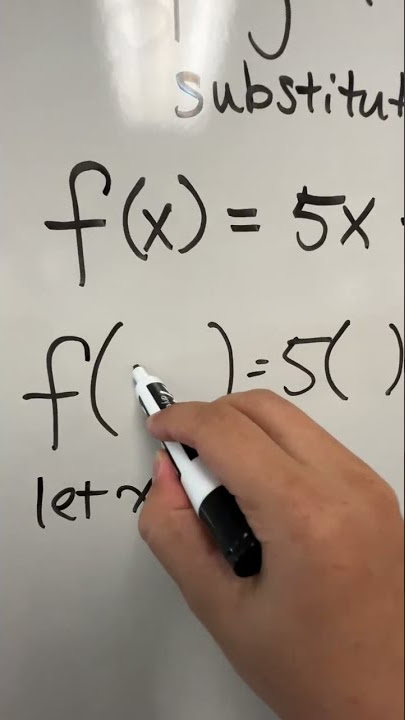 substitut
f(x) = 5x
f( ) = 5( )
let x